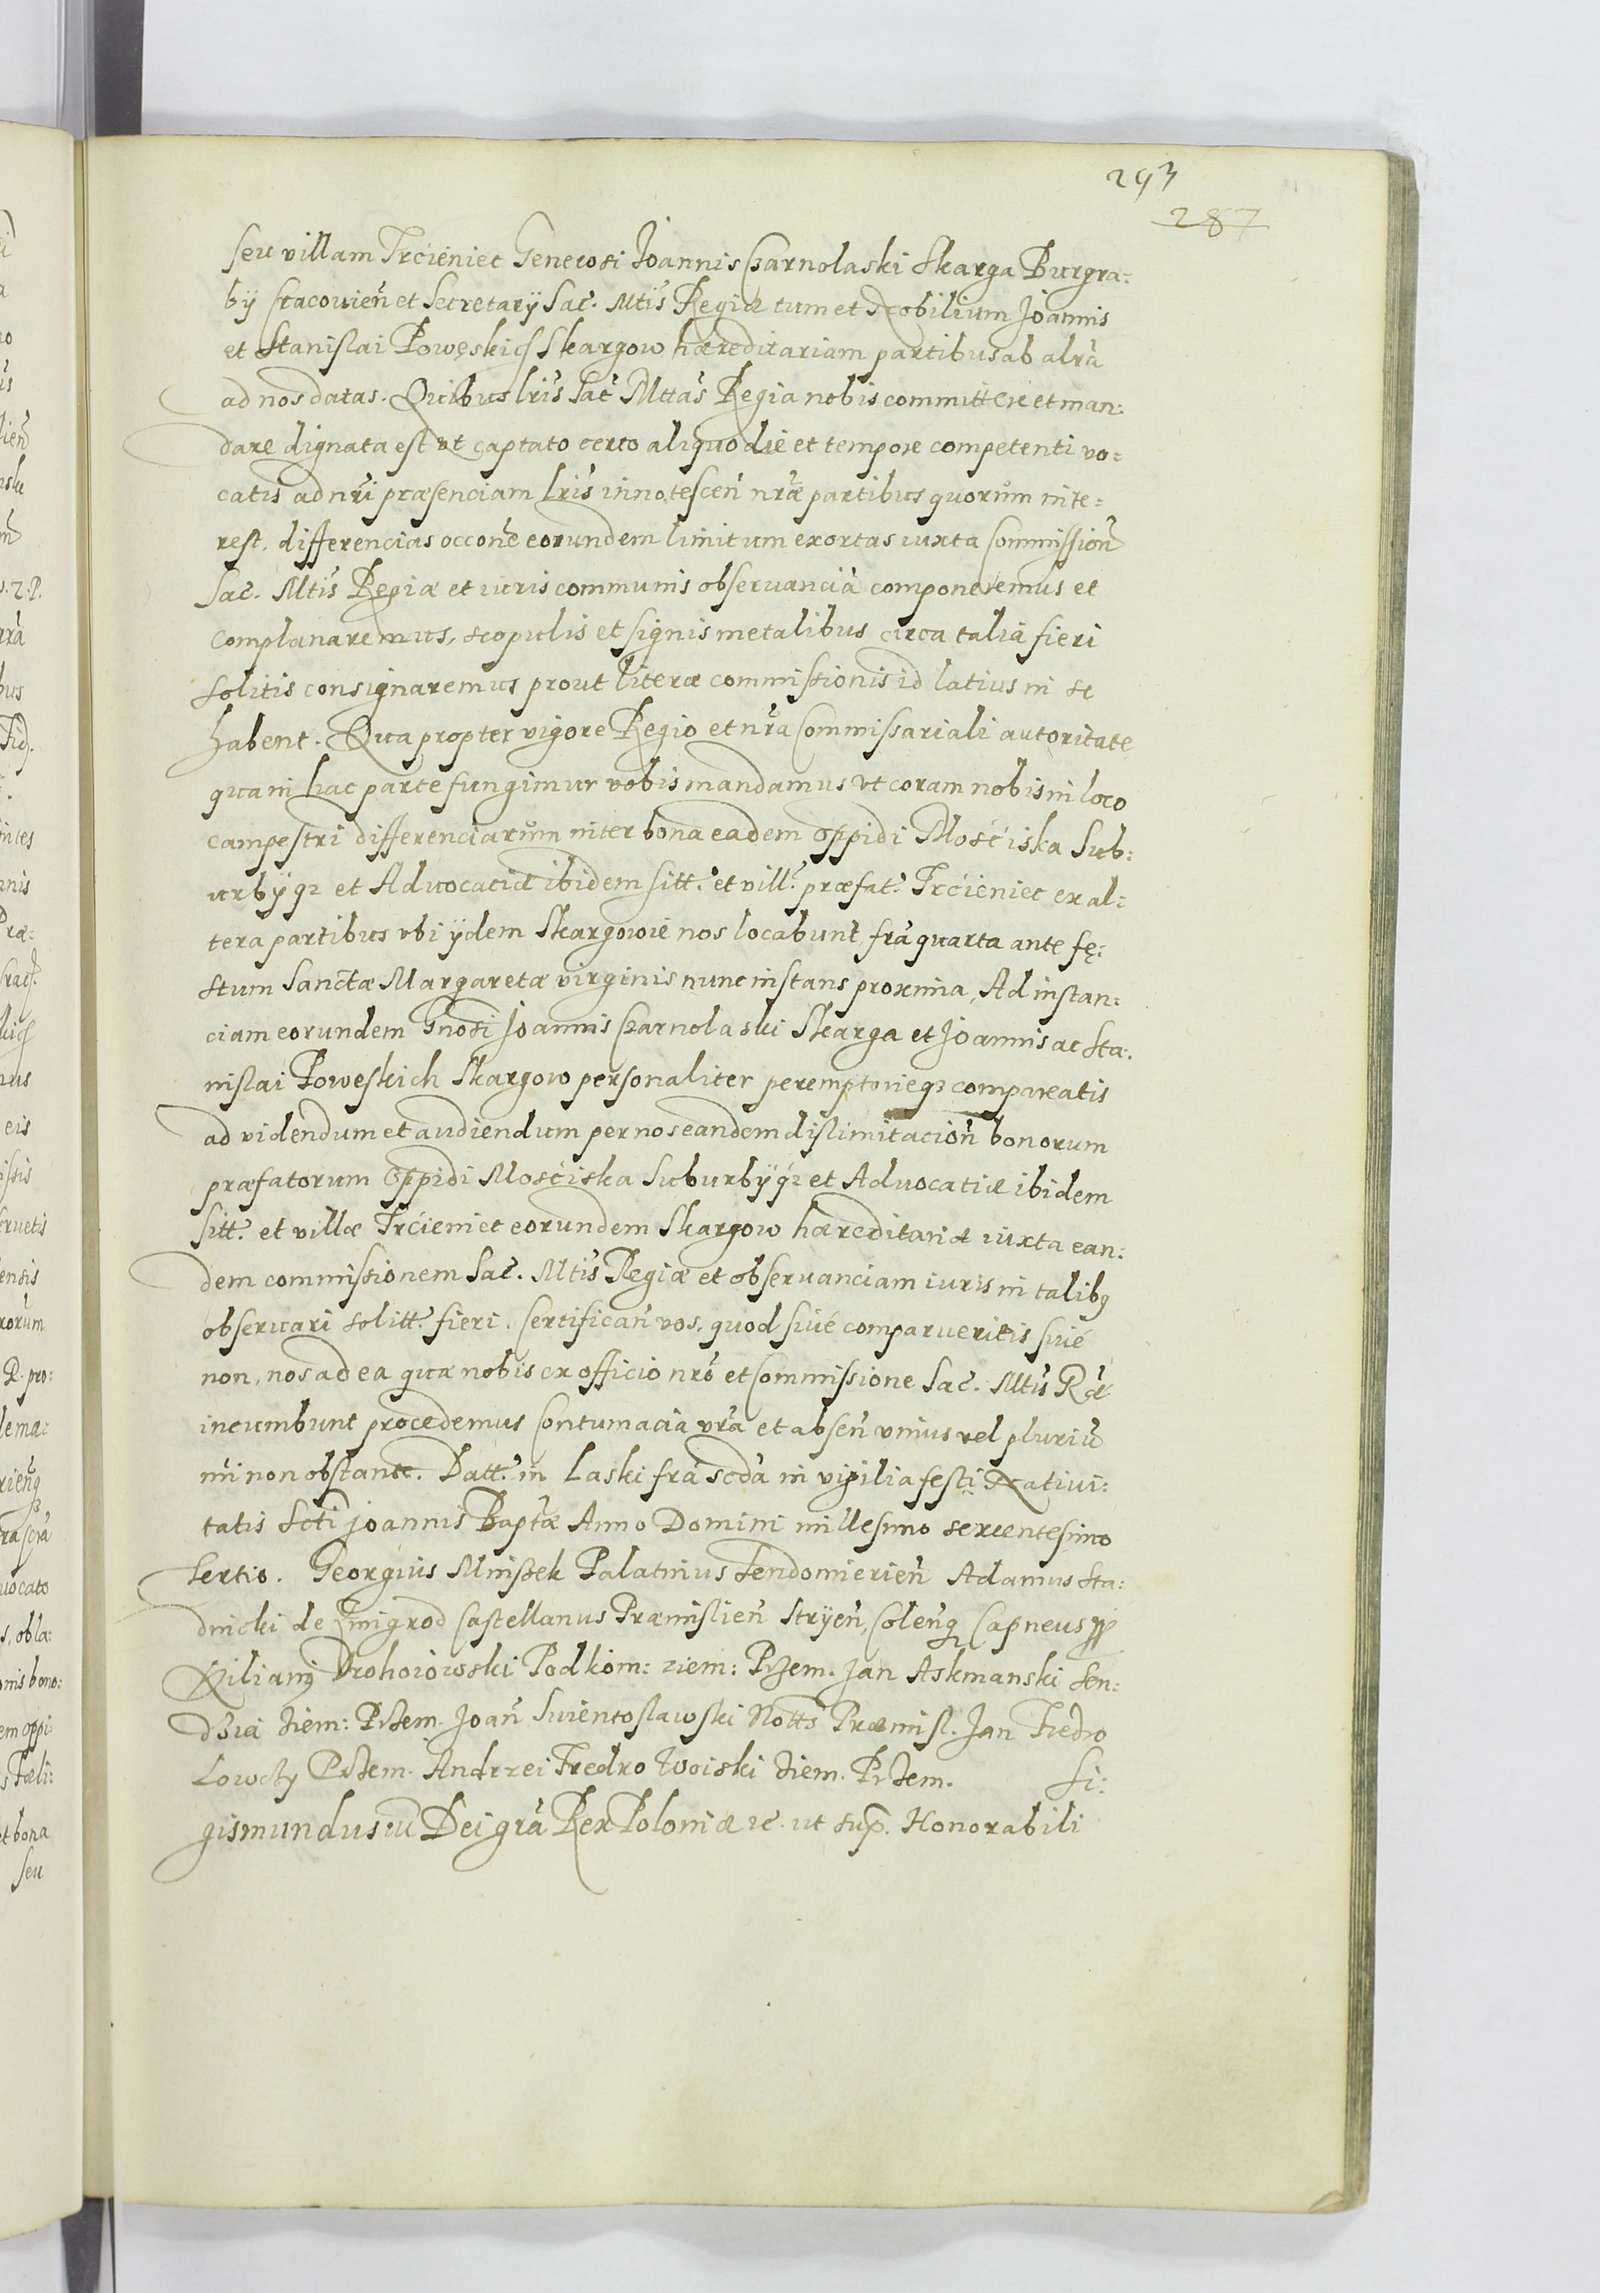 293
287
seu villam Trcieniec Generosi Joannis Czarnolaski Skarga Burgra:
bÿ Cracouien̄ et Secretarÿ Sac̄. Mtīs Regiæ tum et Nobilium Joannis
et Stanislai Powęskich Skargow hæreditariam partibus ab alrā
ad nos datas. Quibus lrīs Sac̄ Mttās Regia nobis committere et man:
dare dignata est ut captato certo aliquo die et tempore competenti vo:
catis ad nrī præsenciam lrīs innotescen̄ nrǣ partibus quorum inte:
rest, differencias occōne eorundem limitum exortas iuxta Commission̄
Sac̄. Mtīs Regiæ et iuris communis observanciā componeremus et
complanaremus, scopulis et signis metalibus circa talia fieri
solitis consignaremus prout literæ commissionis id latius in se
habent. Qua propter vigore Regio et nrā Commissariali autoritate
qua in hac parte fungimur vobis mandamus ut coram nobis in loco
campestri differenciarum inter bona eadem oppidi Mościska Sub:
urbÿq3 et Advocatiæ ibidem sitt. et vill. præfat. Trcieniec ex al:
tera partibus ubi ÿdem Skargowie nos locabunt, frā quarta ante fę:
stum Sanctæ Margaretæ virginis nunc instans proxima, Ad instan:
ciam eorundem Gnosi Joannis Czarnolaski Skarga et Joannis ac Sta:
nislai Poweskich Skargow personaliter peremptorieq3 compareatis
ad videndum et audiendum per nos eandem dislimitacion̄ bonorum
præfatorum Oppidi Mosciska Suburbÿq3 et Advocatiæ ibidem
sitt. et villæ Trcieniec eorundem Skargow hæreditariæ iuxta ean:
dem commissionem Sac̄. Mtīs Regiæ et observanciam iuris in talibq
observari solitt. fieri. Certifican̄ vos, quod sive comparueritis sive
non, nos ad ea quæ nobis ex officio nrō et Commissione Sac̄. Mtīs Rǣ
incumbunt procedemus Contumacia vrā et absen̄ unius vel pluriū
mī non obstante. Datt. in Laski frā scdā in vigilia festi Nativi:
tatis Scti Joannis Baptǣ Anno Domini millesimo sexcentesimo
tertio. Georgius Mnissek Palatinus Sendomierien̄ Adamus Sta:
dnicki de Zmigrod Castellanus Præmislien̄ Stryen̄, Colenq Capneus
Kilianq Drohoiowski Podkom: ziem: Przem. Jan Askmanski Sen:
dzia ziem: Przem. Joan̄ Swientoslawski Notts Præmisl. Jan Fredro
Lowczy Przem. Andrzei Fredro Woiski ziem. Przem. Si:
gismundus iii Dei grā Rex Poloniæ zc. ut sup. Honorabili